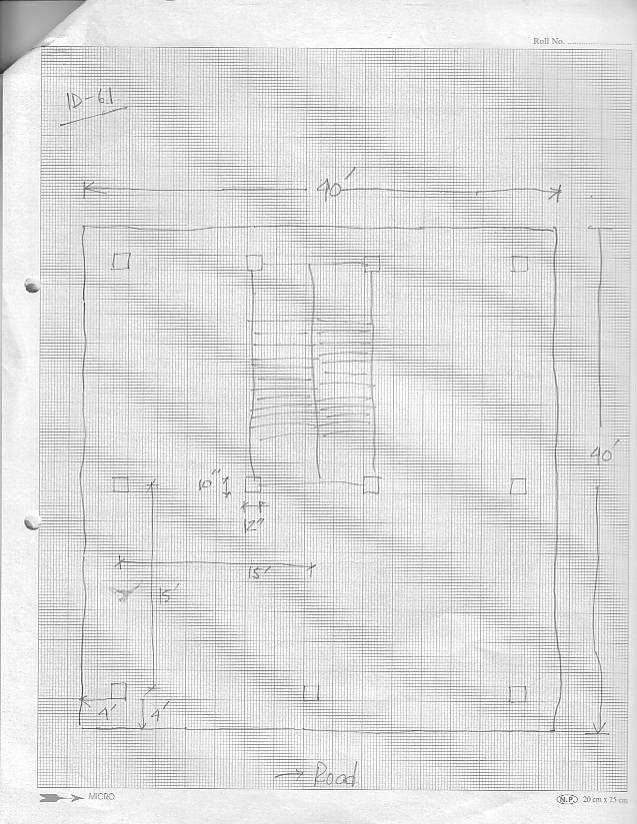 Roll No. ....................
1D-6.1
40'
40'
10"
12"
15'
15'
4'
4'
→ Road
MICRO
N.P. 20 cm x 25 cm